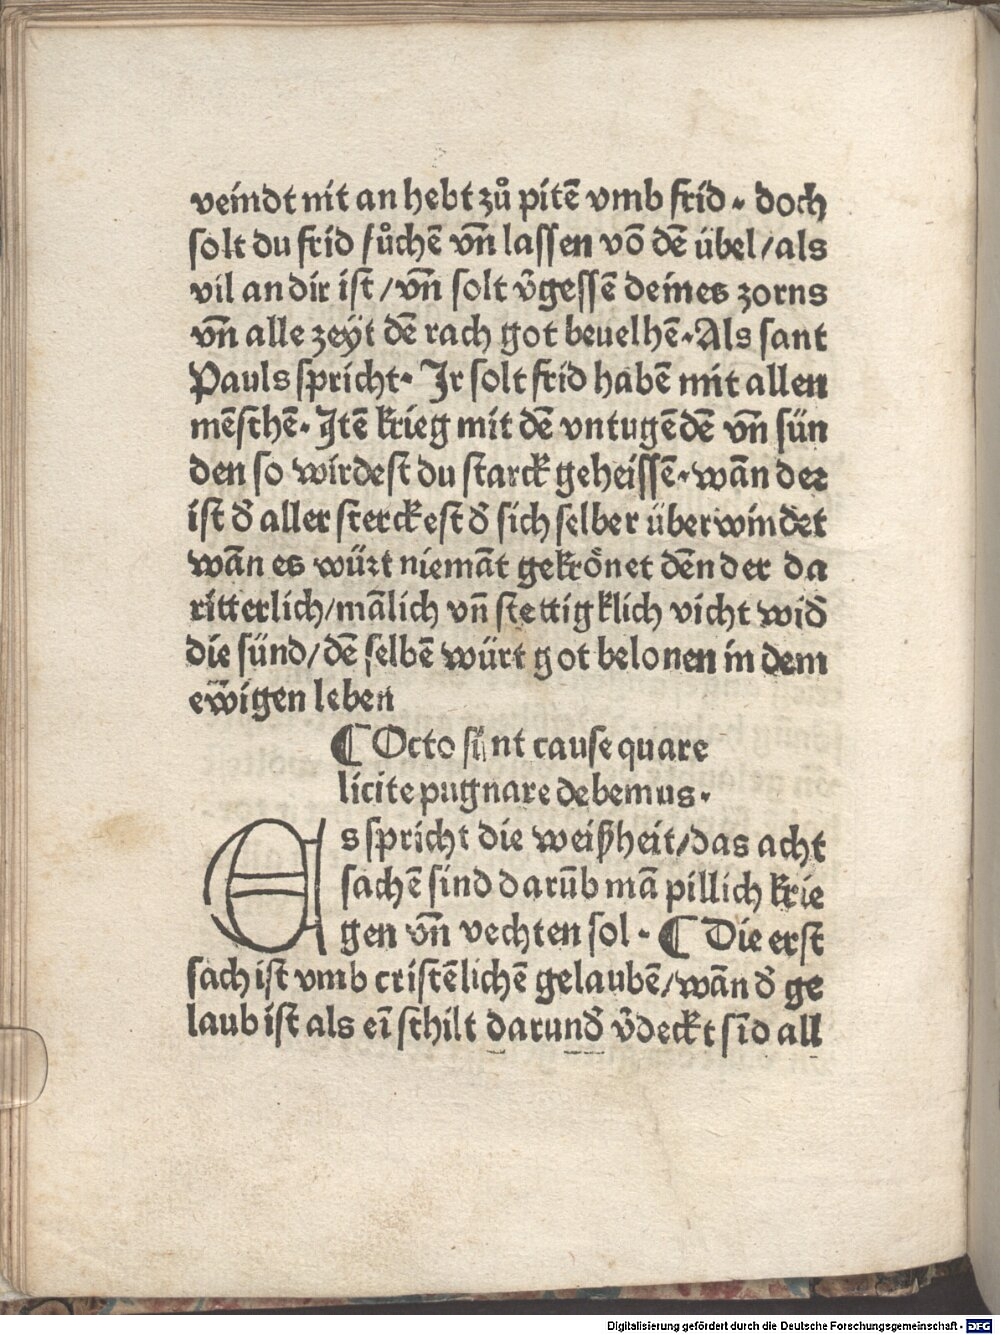 veindt nit an hebt zů pitē vmb frid. doch
solt du frid sůchē vn̄ lassen vō dē übel/als
vil an dir ist/vn̄ solt v̄gessē deines zorns
vn̄ alle zeÿt dē rach got beuelhē. Als sant
Pauls spricht. Jr solt frid habē mit allen
mēschē. Jtē krieg mit dē vntugēdē vn̄ sün
den so wirdest du starck geheissē. wān der
ist d̄ aller sterckest d̄ sich selber überwindet
wān es würt niemāt gekrönet dēn der da
ritterlich/mālich vn̄ stettigklich vicht wid̄
die sünd/dē selbē würt got belonen in dem
ewigen leben
¶ Octo sunt cause quare
licite pugnare debemus.
Es spricht die weißheit/das acht
sachē sind darūb mā pillich krie
gen vn̄ vechten sol. ¶ Die erst
sach ist vmb cristēlichē gelaubē/wān d̄ ge
laub ist als eī schilt darund̄ v̄deckt sīd all
Digitalisierung gefördert durch die Deutsche Forschungsgemeinschaft - DFG